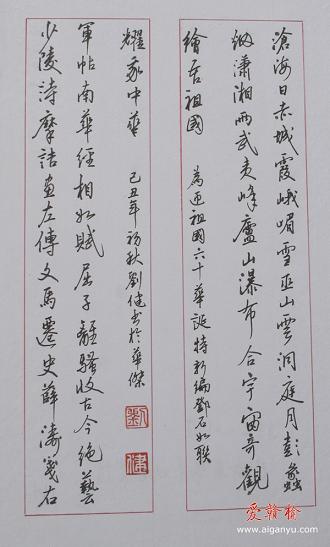 滄海日赤城霞峨嵋雪巫山雲洞庭月彭蠡
烟瀟湘雨武夷峰廬山瀑布合宇宙奇觀
繪吾祖國
為迎祖國六十華誕特新編鄧石如聯
少陵詩摩詰畫左傳文馬遷史薛濤箋右
軍帖南華經相如賦屈子離騷收古今絕藝
耀我中華
己丑年初秋劉健書於華傑
劉
健
爱赣榆
www.aiganyu.com